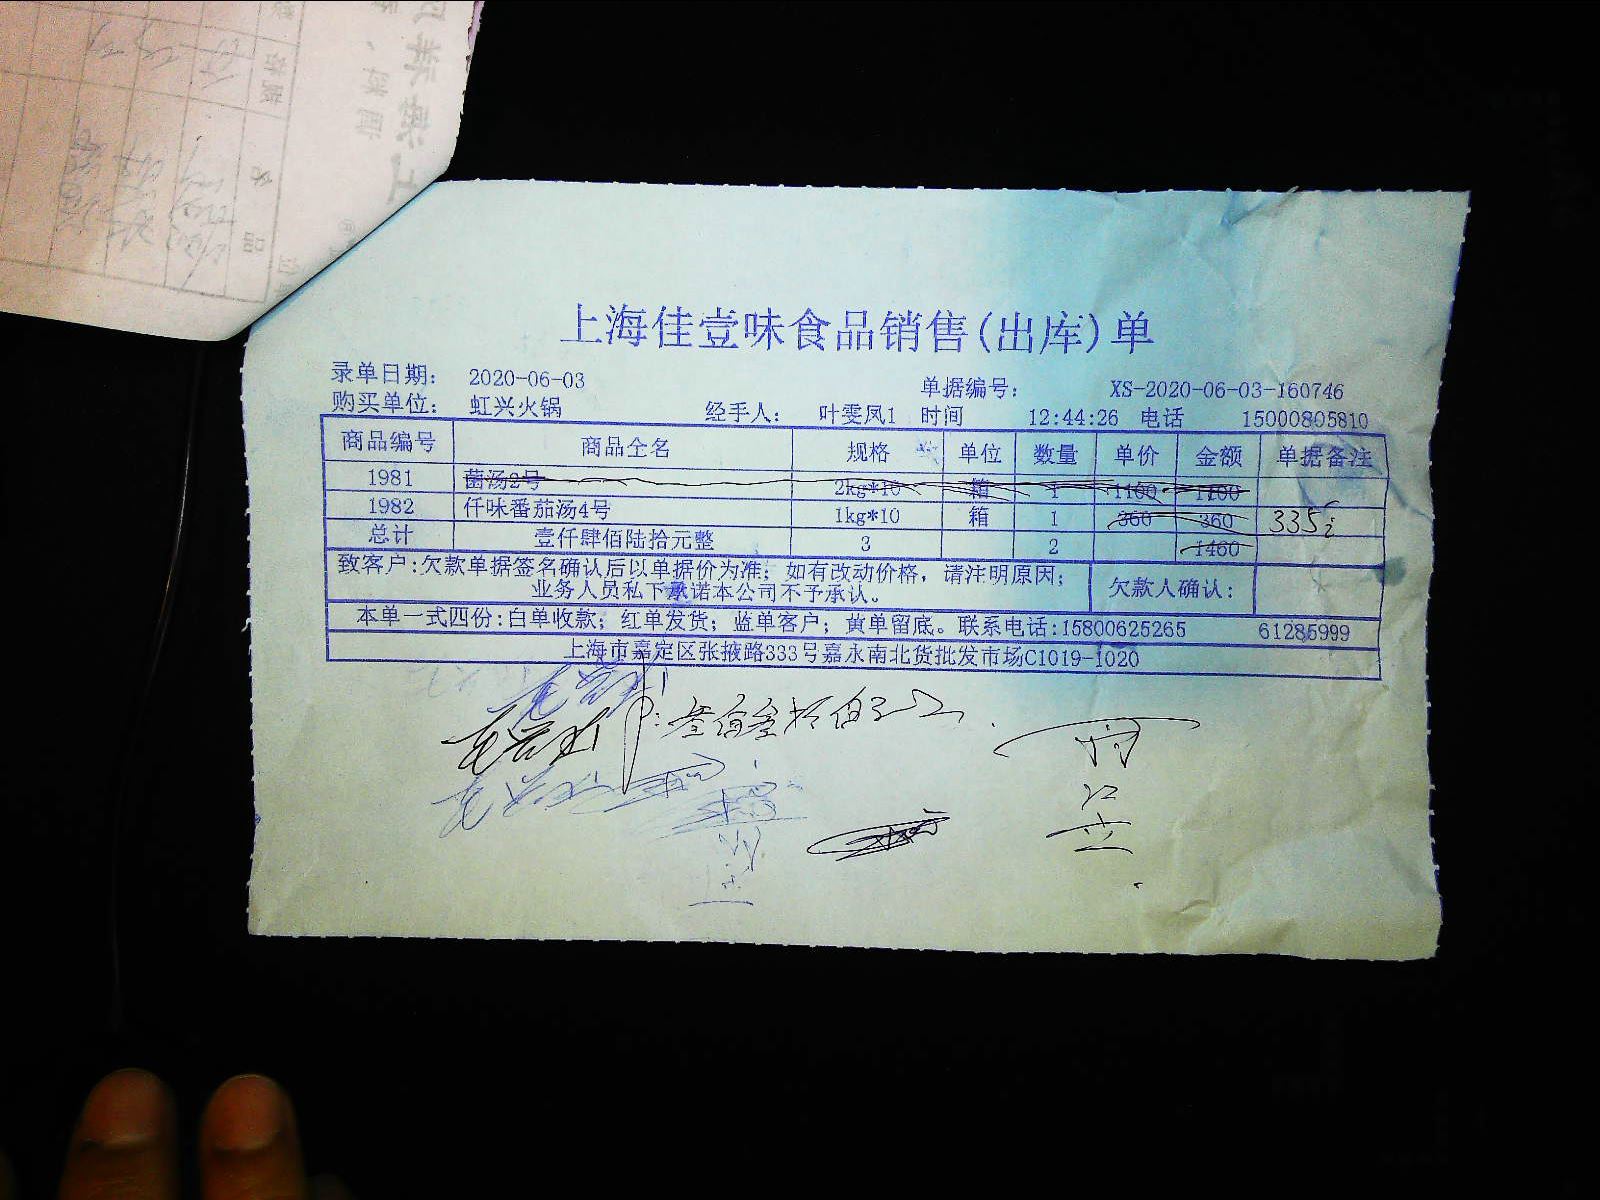 上海佳壹味食品销售(出库)单
录单日期: 2020-06-03 单据编号: XS-2020-06-03-160746
购买单位: 虹兴火锅 经手人: 叶雯凤1 时间 12:44:26 电话 15000805810
商品编号 商品全名 规格 单位 数量 单价 金额 单据备注
1981 菌汤2号 2kg*10 箱 1 1100 1100
1982 仟味番茄汤4号 1kg*10 箱 1 360 360 335
总计 壹仟肆佰陆拾元整 3 2 1460
致客户:欠款单据签名确认后以单据价为准; 如有改动价格, 请注明原因; 欠款人确认:
业务人员私下承诺本公司不予承认。
本单一式四份:白单收款; 红单发货; 蓝单客户; 黄单留底。联系电话:15800625265 61285999
上海市嘉定区张掖路333号嘉永南北货批发市场C1019-1020